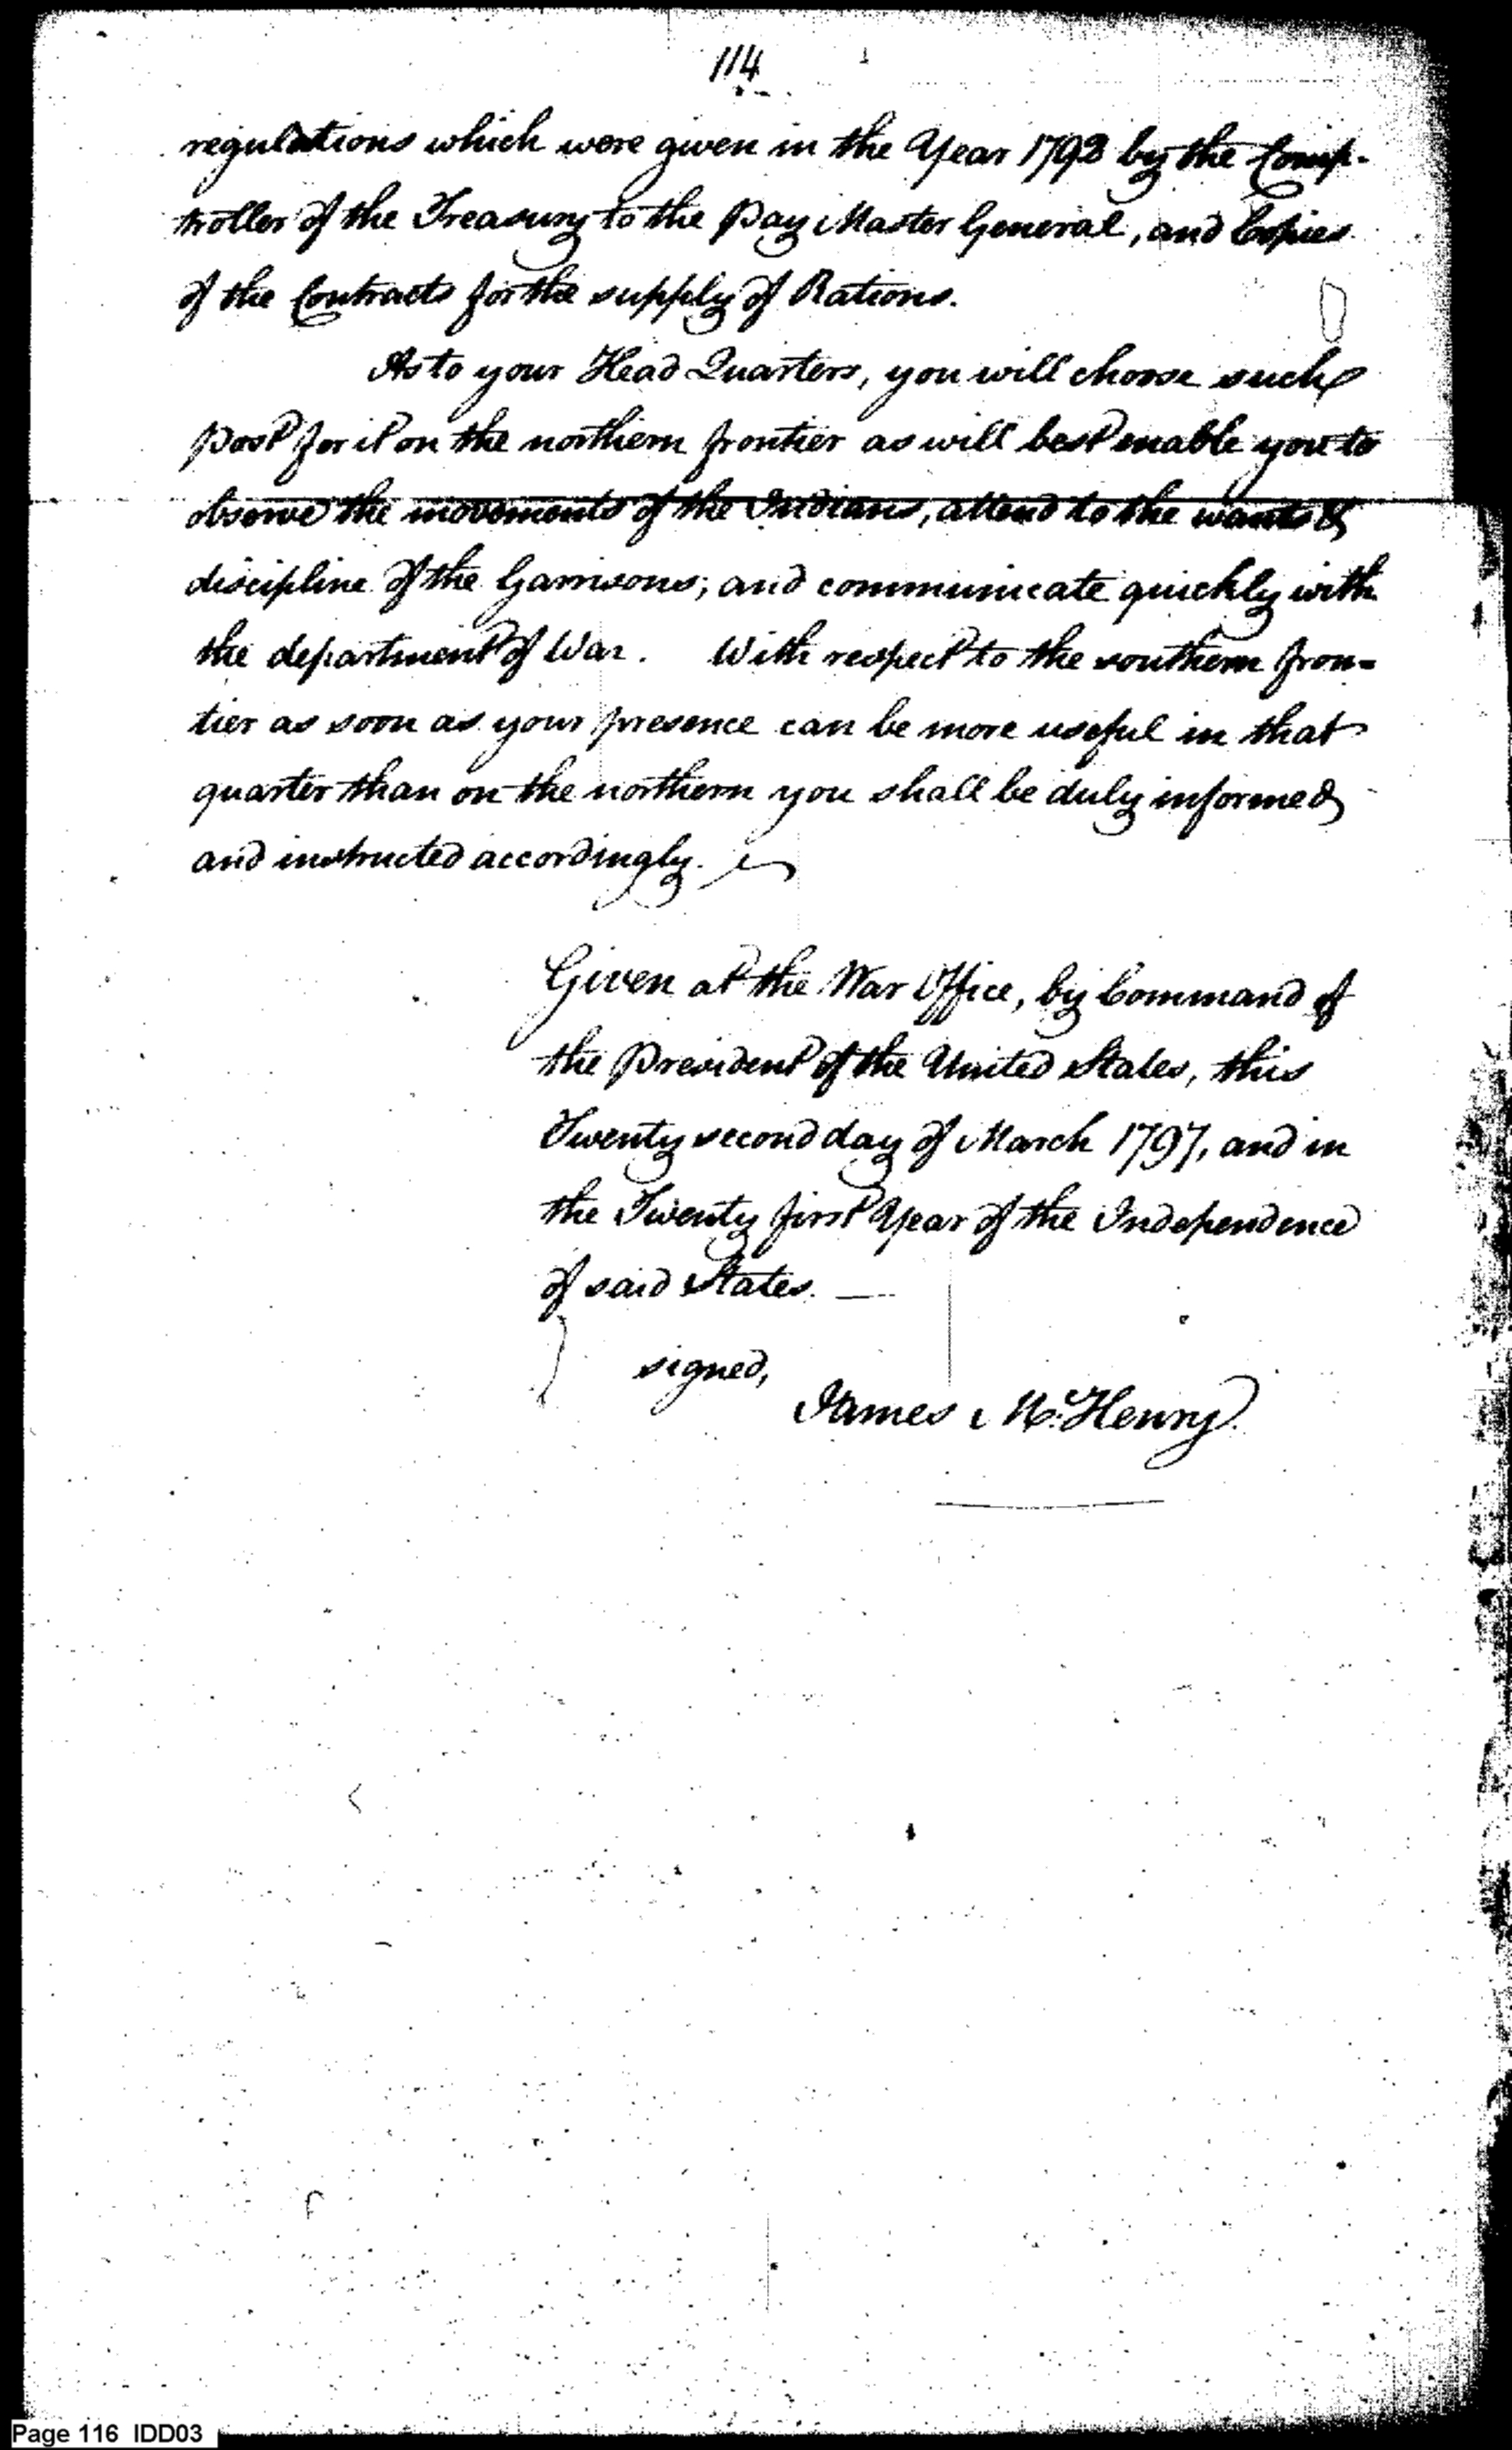 114
regulations which were given in the Year 1792 by the Comp-
troller of the Treasury to the Pay Master General, and Copies
of the Contracts for the supply of Rations.
As to your Head Quarters, you will choose such
post for it on the northern frontier as will best enable you to
observe the movements of the Indians, attend to the wants &
discipline of the Garrisons; and communicate quickly with
the department of War. With respect to the southern fron=
tier as soon as your presence can be more useful in that
quarter than on the northern you shall be duly informed
and instructed accordingly.
Given at the War Office, by Command of
the President of the United States, this
Twenty second day of March 1797, and in
the Twenty first Year of the Independence
of said States. —
signed,
James Mc.Henry.
Page 116 IDD03